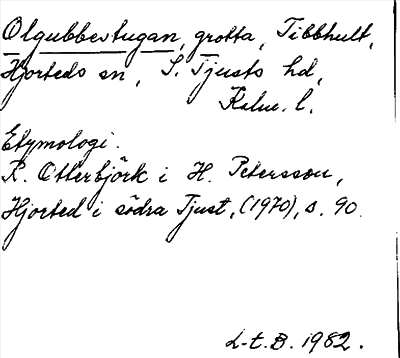 Olgubbestugan, grotta, Tibbhult,
Hjorteds sn, S. Tjusts hd,
Kalm. l.
Etymologi.
R. Otterbjörk i H. Petersson,
Hjorted i södra Tjust, (1970), s. 90.
L-t. B. 1982.